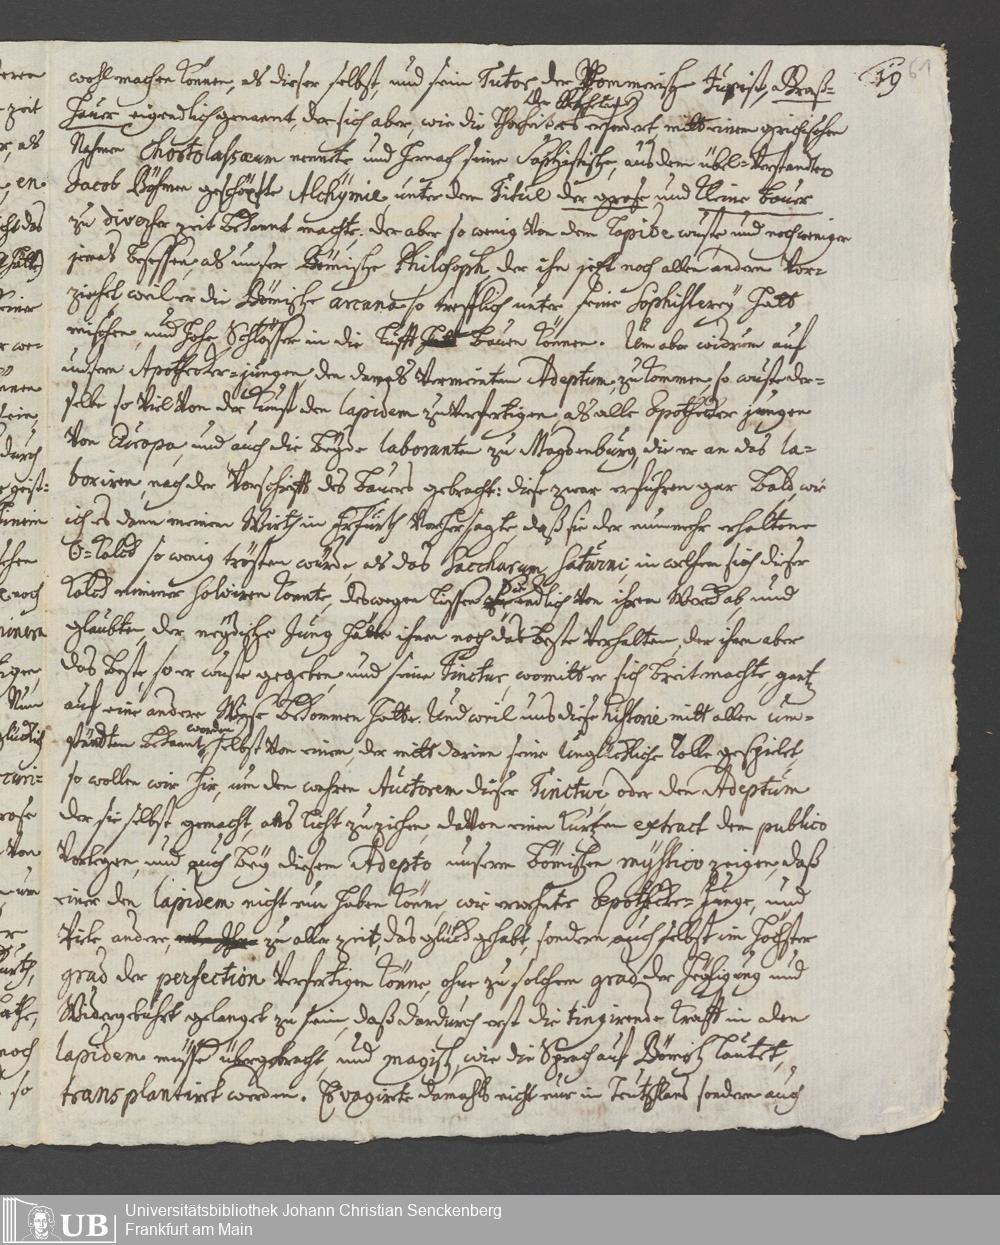 19 61
wohl machen können, als dieser selbst, und sein Tutor der Pommerische Jurist, Graß-
hauer eigendlich genannt, der sich aber, wie die Thorheit es erfodert, mitt einem grichischen
Nahmen Chortolassæum nennete und hernach seine Sophistische, aus dem übel-verstandten
Jacob Böhmen geschöpfte Alchÿmie unter dem Titul der grose und kleine baur
zu diverser zeit bekannt machte, der aber so wenig von dem lapide wuste und noch weniger
jemals besessen, als unser Bömische Philosoph, der ihn jetzt noch allen andern vor-
ziehet, weil er die Bömische arcana so trefflich unter seine Sophisterey hatt
mischen, und hohe Schlösser in die Lufft bauen können. Um aber widrum auf
unsern Apothecker-jungen den damals vermeinten Adeptum zu kommen, so wuste der-
selbe so viel von der Kunst den lapidem zu verfertigen, als alle Apothecker jungen
von Europa, und auch die beÿde laboranten zu Magdenburg, die er an das la-
boriren, nach der Vorschrifft des bauers gebracht: diese zwar erfuhren gar bald, wie
ich es dann meinem Wirth in Erfurth vorhersagte, daß sie der nunmehr erhaltene
kalck so wenig trösten würde, als das Saccharum Saturni, in welchem sich dieser
kalck nimmer solviren konte, deswegen liessen sie endlich von ihrem Werck ab und
glaubten, der neÿdische Jung hätte ihnen noch das beste verhalten, der ihnen aber
das beste, so er wuste gegeben, und seine Tinctur, womitt er sich breit machte, gantz
auf eine andere Weise bekommen hatte. Und weil uns diese historie mitt allen um-
ständten bekannt worden, selbst von einem, der mitt darinn seine unglückliche Rolle gespielet,
so wollen wir hir, um den wahren Auctorem dieser Tinctur oder den Adeptum
der sie selbst gemacht, ans licht zu ziehen, davon einen kurtzen extract dem publico
vorlegen, und auch beÿ diesem Adepto unserm Bömischen mÿstico zeigen, daß
einer den lapidem nicht nur haben könne, wie erwehnter Apothecker-Junge, und
viele andere, zu aller zeit, das glück gehabt, sondern auch selbst im höchsten
grad der perfection verfertigen könne, ohne zu solchem grad der heiligung und
Widergebuhrt gelanget zu sein, daß dardurch erst die tingirende krafft in den
lapidem müsse übergebracht, und magisch, wie die Sprach auf Bömisch lautet,
transplantiret werden. Es vagirete damahls nicht nur in Teutschland sondern auch
Universitätsbibliothek Johann Christian Senckenberg
Frankfurt am Main
UB